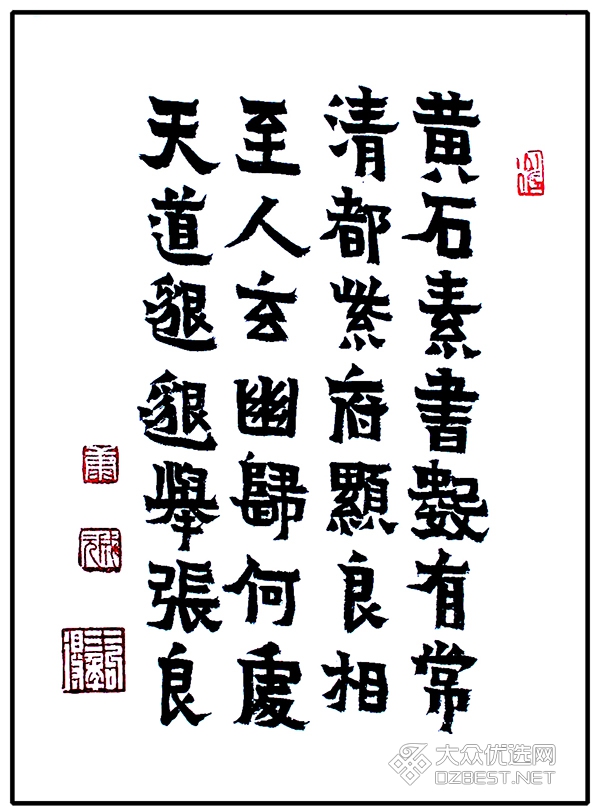 黄石素書數有常
清都紫府顯良相
至人玄幽歸何處
天道邈邈舉張良
大众优选网
DZBEST.NET